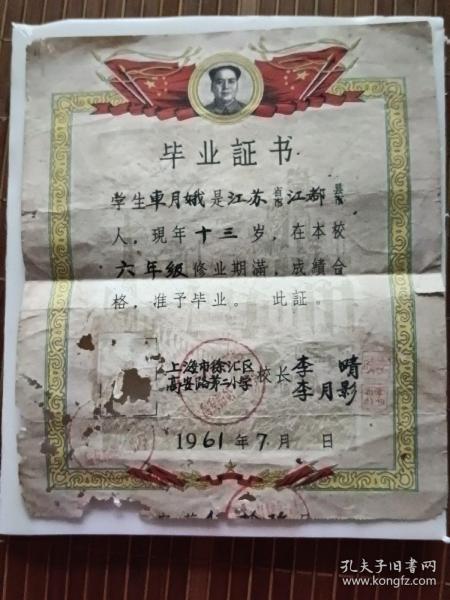 毕业証书
学生車月娥是江苏省市江都县市
人，現年十三岁，在本校
六年級修业期滿，成績合
格，准予毕业。此証。
上海市徐汇区
高安路第二小学
校长李晴
李月影
1961年7月 日
孔夫子旧书网
www.kongfz.com